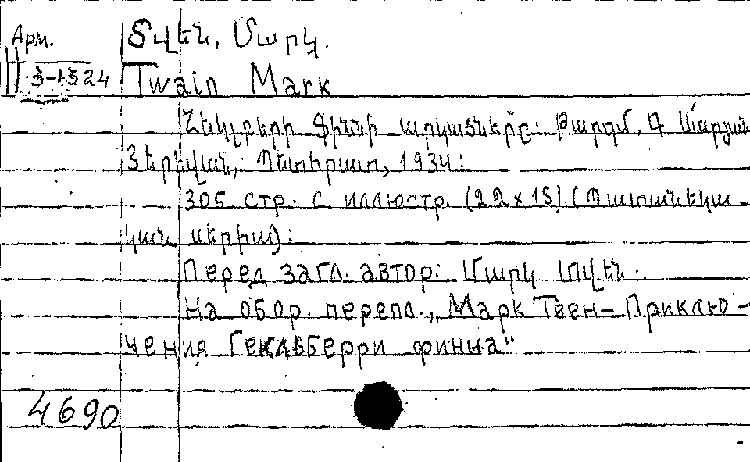 Арм.
Տվեն, Մարկ.
3-1524
Twain Mark
Հեկլբերի Ֆիննի արկածները: Թարգմ. Գ. Մարյան
Յերեվան, Պետհրատ, 1934:
305 стр. с иллюстр. (22x15) (Պատանեկա-
կան սերիա):
Перед загл. автор: Մարկ Տվեն.
На обор. перепл., Марк Твен– Приклю-
чения Геклберри финна"
4690